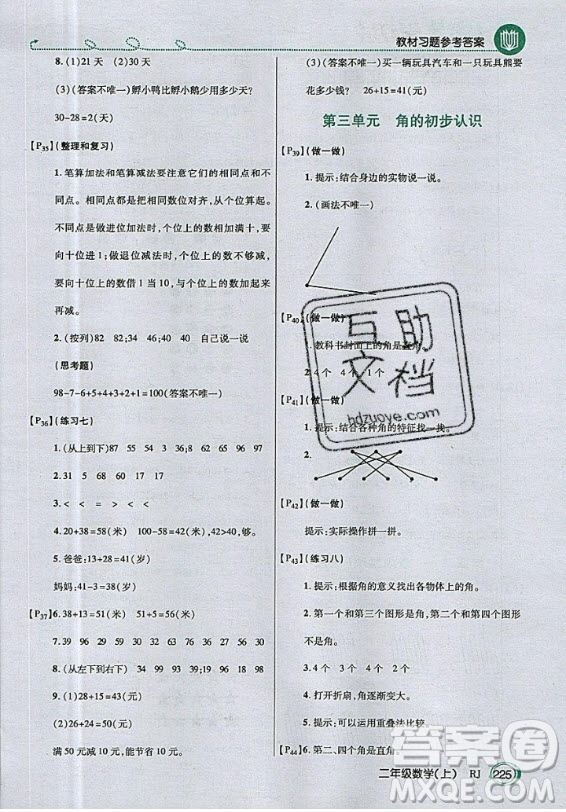 教材习题参考答案
8. (1)21 天　(2)30 天
(3)(答案不唯一)孵小鸭比孵小鹅少用多少天?
30-28=2(天)
【P35】(整理和复习)
1. 笔算加法和笔算减法要注意它们的相同点和不
同点。相同点是相同数位对齐，从个位算起。
不同点是做进位加法时,个位上的数相加满十,
要向十位进 1;做退位减法时,个位上的数不够减,
要向十位上的数借 1 当 10,与个位上的数加起来
再减。
2. (按列)82　82　82;34　46　自己说一说
(思考题)
98-7-6+5+4+3+2+1=100(答案不唯一)
【P36】(练习七)
1. (从上到下)87　55　54　32　26　63　98
2. 31　5　68　60　17　40
3. <　<　=　>　<　<
4. 20+38=58(米)　100-58=42(米),42>0,够。
5. 爸爸:13+28=41(岁)
妈妈:41-3=38(岁)
【P37】6. 38+13=51(米)　51+50=101(米)
7. 39　96　29　30　56　30　63　36　90　33
8. (从左下到右下)34　46　73　82　67　94
9. (1)28+15=43(元)
(2)26+24=50(元)
满 50 元减 10 元, 能节省 10 元。
(3)(答案不唯一)买一辆玩具汽车和一只玩具熊要
花多少钱?　26+15=41(元)
第三单元　角的初步认识
【P39】(做一做)
1. 提示:结合身边的实物说一说。
2. (画法不唯一)
【P40】(做一做)
1. 教科书封面上的角是直角。
2. 4 个　4 个　1 个
【P41】(做一做)
1. 提示:结合各种角的特征找一找。
2.
【P42】(做一做)
提示:实际操作拼一拼。
【P43】(练习八)
1. 提示:根据角的意义找出各物体上的角。
2. 第一个和第三个图形是角,第二个和第四个图形
不是角。
3. 4 个　3 个　4 个
4. 打开折扇,角逐渐变大。
5. 提示:可以用重叠法比较。
【P44】6. 第二、四个角是直角。
互助
文档
hdzuoye.com
二年级数学(上)　RJ　225
作业答案